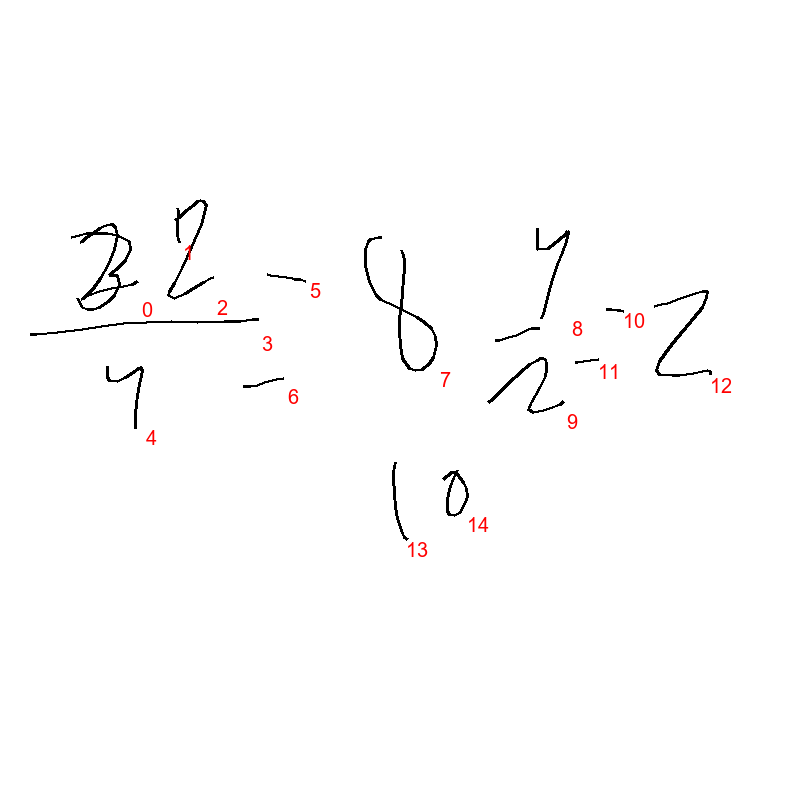 32/4 = 8 4/2 = 2
10
0 1 2 3 4 5 6 7 8 9 10 11 12 13 14